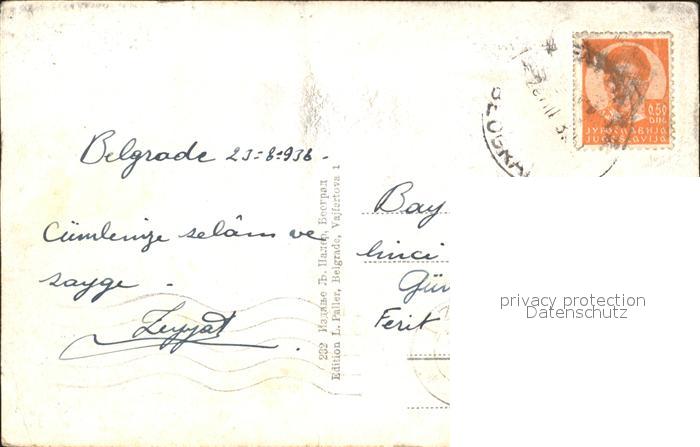 Belgrade 23-8-938-
Cümlenize selâm ve
saygı -
Zeyyat
232 Издање Љ. Палер, Београд
Edition L. Paller, Belgrade, Vajfertova 1
BEOGRAD
0.50
ДИН
ЈУГОСЛАВИЈА
JUGOSLAVIJA
Bay
linci
Gün
Ferit
privacy protection
Datenschutz